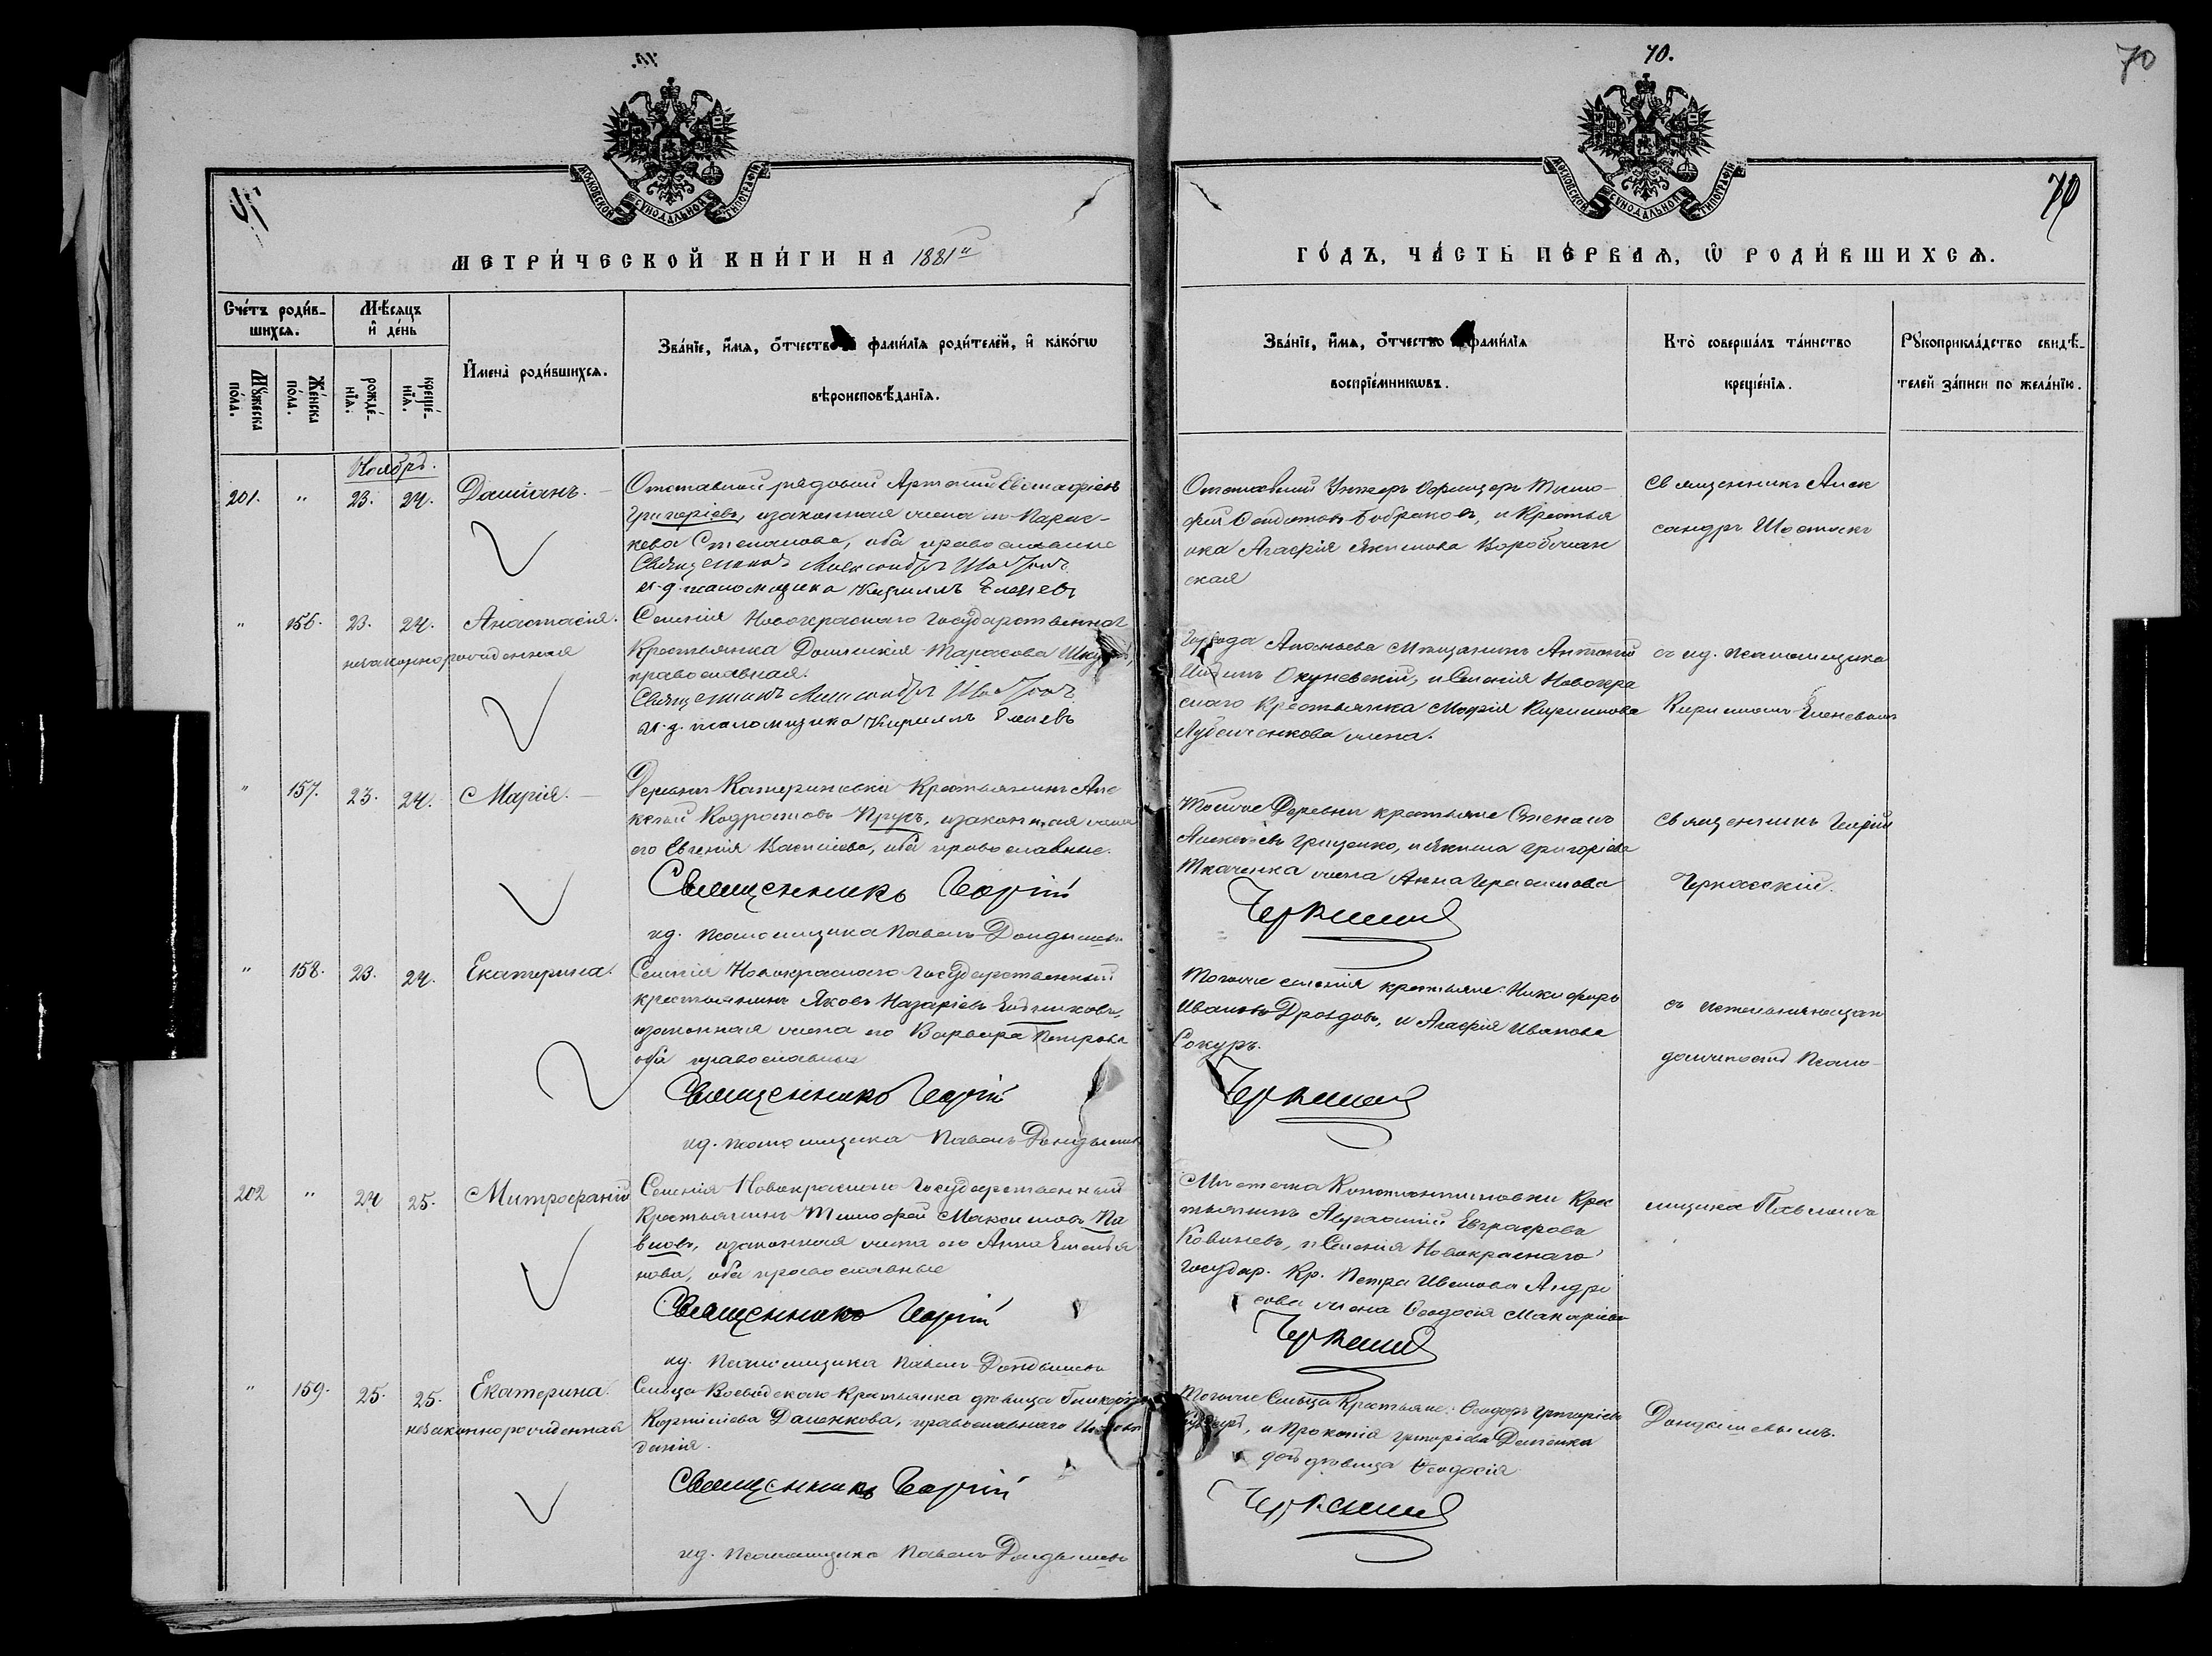 70.
70
МОСКОВСКОЙ СУНОДАЛЬНОЙ ТИПОГРАФІИ
МОСКОВСКОЙ СУНОДАЛЬНОЙ ТИПОГРАФІИ
70
МЕТРИ́ЧЕСКОЙ КНИ́ГИ НА 1881й
ГО́ДЪ, ЧА́СТЬ ПЕ́РВАЯ, Ѿ РОДИ́ВШИХСЯ.
Сче́тъ роди́в-
шихся.
Мѣ́сяцъ
и҆ де́нь
Мꙋ́жеска
по́ла.
Же́нска
по́ла.
рожде́-
нїя.
креще́-
нїя.
И҆мена̀ роди́вшихся.
Зва́нїе, и҆́мя, ѻ҆́тчество фами́лїя роди́телей, и҆ како́гѡ
вѣроисповѣ́данїя.
Зва́нїе, и҆́мя, ѻ҆́тчество фами́лїя
воспрїе́мникѡвъ.
Кто̀ соверша́лъ та́инство
креще́нїя.
Рꙋкоприкла́дство свидѣ́-
телей за́писи по жела́нїю.
Ноябрь.
201. " 23. 24. Даміанъ.
Отставной рядовой Артемій Евстафіевъ
Григорьевъ, и законная жена его Парас-
кева Степанова, оба православные
Священникъ Александръ Шостакъ
и. д. псаломщика Кириллъ Еленевъ
Отставной Унтеръ Офицеръ Тимо-
фей Бобраковъ, и Крестья
нка Агафія Якимова
ская
Священникъ Алек
сандръ Шостакъ
" 156. 23. 24. Анастасія.
незаконнорожденная
Селенія Новокраснаго Государственная
Крестьянка Домникія Тарасова
православная.
Священникъ Александръ Шостакъ
и. д. псаломщика Кириллъ Еленевъ
Города Ананьева Мѣщанинъ Антоній
Окуневскій, и Селенія Новокра
снаго Крестьянка Марія Кириллова
жена.
съ ид. псаломщика
Кирилломъ Еленевымъ
" 157. 23. 24. Марія.
Деревни Катериновки Крестьянинъ Але
ксѣй Кодратовъ Прусъ, и законная жена
его Евгенія Васильева, оба православные.
Священникъ Георгій
ид. псаломщика Павелъ Дондышевъ
Тойже Деревни крестьяне Степанъ
Алексѣевъ Гриценко, и Якима Григорьева
Ткаченка жена Анна Герасимова
Черкасскій
Священникъ Георгій
Черкасскій.
" 158. 23. 24. Екатерина.
Селенія Новокраснаго Государственный
крестьянинъ Яковъ Назаріевъ
и законная жена его Варвара Петрова
оба православные
Священникъ Георгій
ид. псаломщика Павелъ Дондышевъ
Тогоже селенія крестьяне: Никифоръ
Ивановъ Дроздовъ, и Агафія Иванова
Сокуръ.
Черкасскій
съ исполняющимъ
должность Псало-
202 " 24 25. Митрофаній
Селенія Новокраснаго Государственный
Крестьянинъ Тимофей Максимовъ Па
вловъ, и законная жена его Анна Емелья
нова, оба православные
Священникъ Георгій
ид. псаломщика Павелъ Дондышевъ
Мѣстечка Константиновки Крес
тьянинъ Евграфовъ
и Селенія Новокраснаго
Государ. Кр. Петра Иванова Андре
ева жена Ѳеодосія Макаріева
Черкасскій
мщика Павломъ
" 159. 25. 25. Екатерина.
незаконнорожденная
Сельца Воеводскаго Крестьянка дѣвица Гликерія
Корнилієва Даленкова, православнаго Исповѣ
данія.
Священникъ Георгій
ид. псаломщика Павелъ Дондышевъ
Тогоже Сельца Крестьяне: Ѳеодоръ Григорьевъ
и Прокопія Григорьева Даленка
дочь дѣвица Ѳеодосія
Черкасскій
Дондышевымъ.